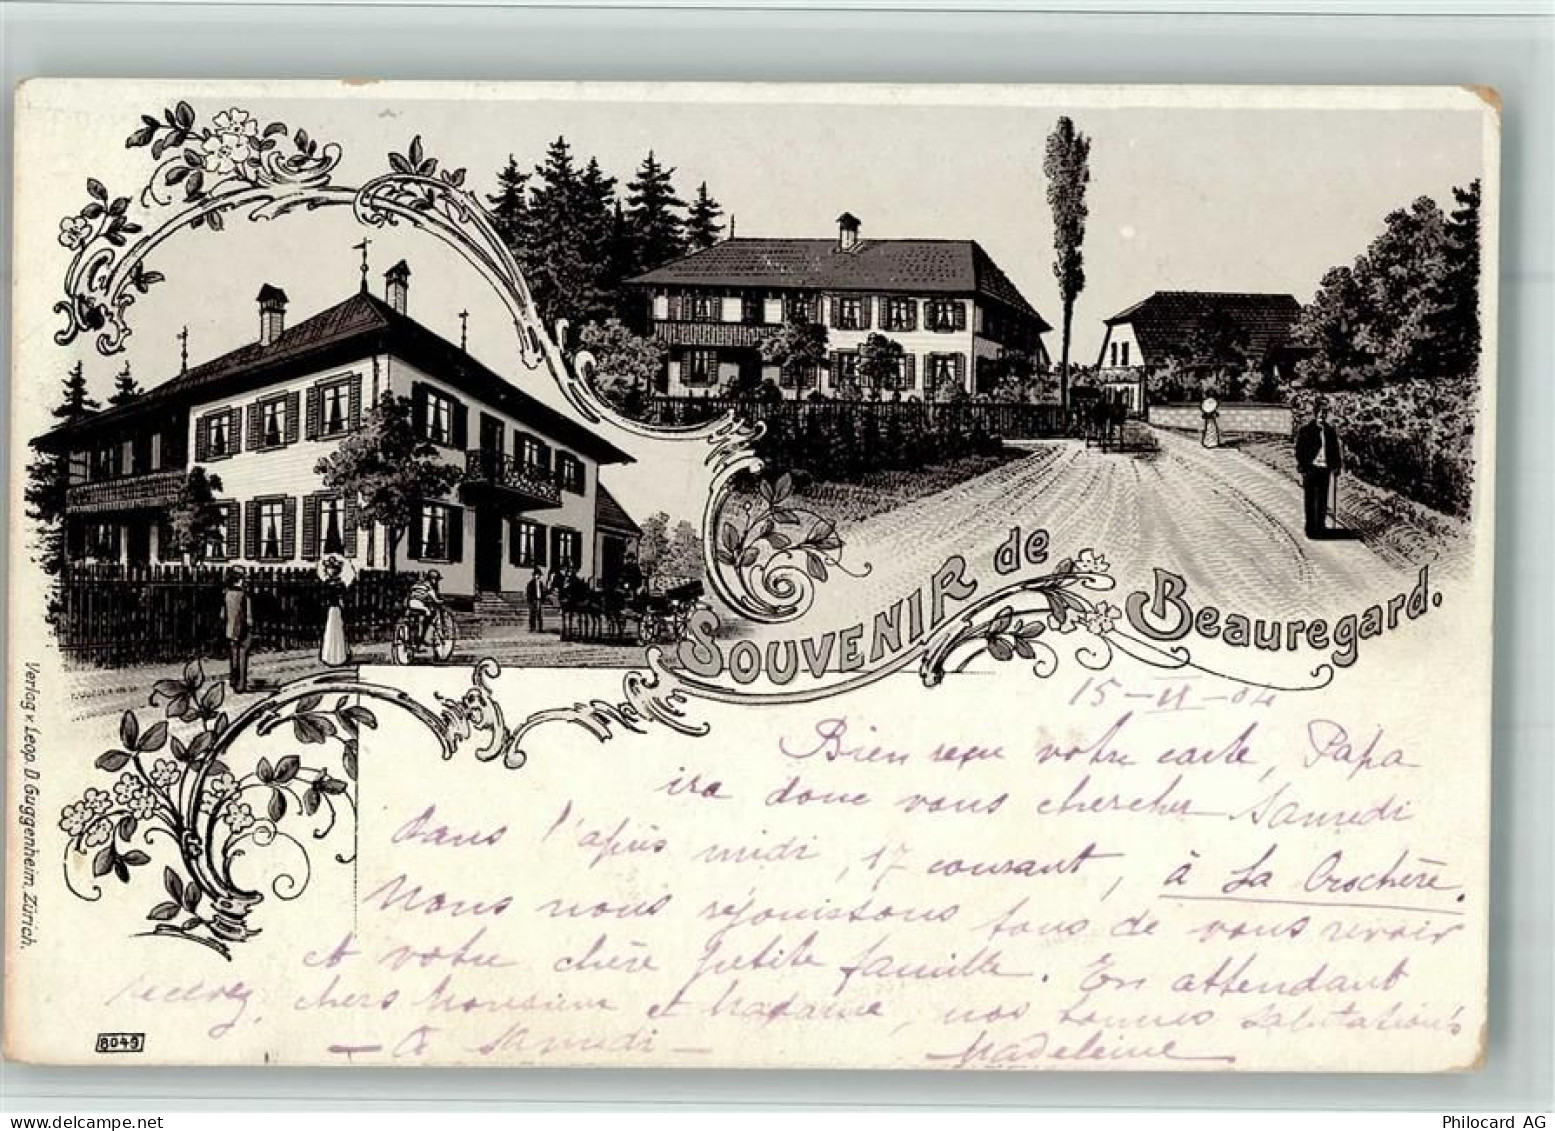 SOUVENIR de Beauregard.
15-VI-04
Bien reçu votre carte, Papa
ira donc vous chercher Samedi
dans l'après midi, 17 courant, à La Crochère.
Nous nous réjouissons tous de vous revoir
et votre chère petite famille. En attendant
recevez, chers Monsieur et Madame, nos bonnes salutations
- A Samedi - Madeleine
Verlag v. Leop. D. Guggenheim. Zürich.
8049
Philocard AG